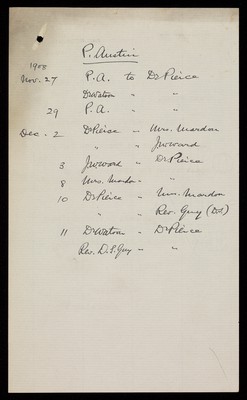 P. Austin
1908
Nov. 27 P.A. to Dr Pierce
Dr Watson " "
29 P.A. " "
Dec. 2 Dr Pierce - Mrs. Mardon
" " J W Ward
3 J W Ward " Dr Pierce
8 Mrs. Mardon - "
10 Dr Pierce - Mrs. Mardon
" " Rev. Guy (D.S.)
11 Dr Watson - Dr Pierce
Rev. D.S. Guy - "